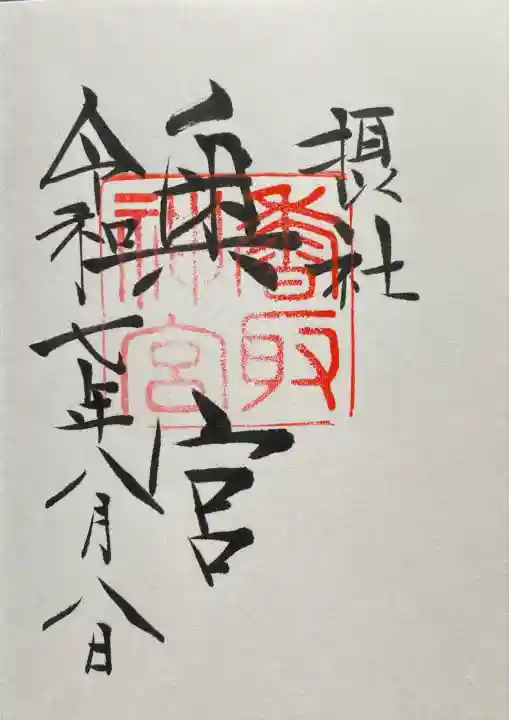 摂社
奥宮
香取神宮
令和七年八月八日